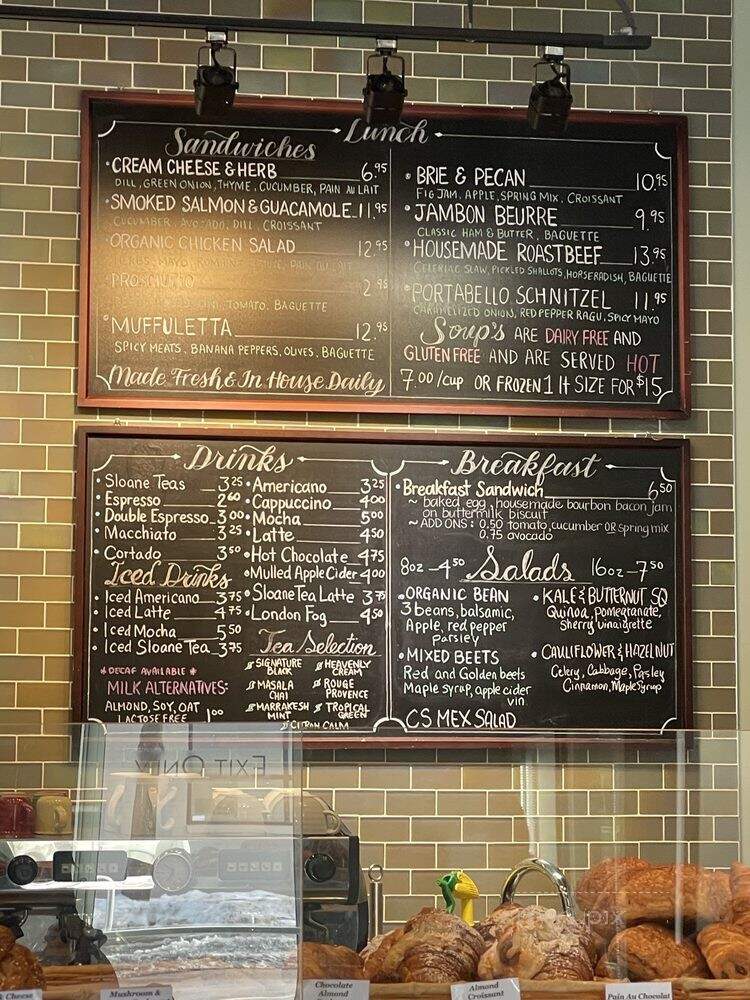 Lunch
Sandwiches
• CREAM CHEESE & HERB 6.95
DILL, GREEN ONION, THYME, CUCUMBER, PAIN AU LAIT
• SMOKED SALMON & GUACAMOLE 11.95
CUCUMBER, AVOCADO, DILL, CROISSANT
• ORGANIC CHICKEN SALAD 12.95
PAIN AU LAIT
PROSCIUTTO
TOMATO, BAGUETTE
• MUFFULETTA 12.95
SPICY MEATS, BANANA PEPPERS, OLIVES, BAGUETTE
Made Fresh & In House Daily
• BRIE & PECAN 10.95
FIG JAM, APPLE, SPRING MIX, CROISSANT
• JAMBON BEURRE 9.95
CLASSIC HAM & BUTTER, BAGUETTE
• HOUSEMADE ROASTBEEF 13.95
CELERIAC SLAW, PICKLED SHALLOTS, HORSERADISH, BAGUETTE
• PORTABELLO SCHNITZEL 11.95
CARAMELIZED ONION, RED PEPPER RAGU, SPICY MAYO
Soup's ARE DAIRY FREE AND
GLUTEN FREE AND ARE SERVED HOT
7.00/CUP OR FROZEN 1 lt SIZE FOR $15
Drinks
• Sloane Teas 3.25
• Espresso 2.60
• Double Espresso 3.00
• Macchiato 3.25
• Cortado 3.50
Iced Drinks
• Iced Americano 3.75
• Iced Latte 4.75
• Iced Mocha 5.50
• Iced Sloane Tea 3.75
* DECAF AVAILABLE *
MILK ALTERNATIVES:
ALMOND, SOY, OAT
LACTOSE FREE 1.00
• Americano 3.25
• Cappuccino 4.00
• Mocha 5.00
• Latte 4.50
• Hot Chocolate 4.75
• Mulled Apple Cider 4.00
• Sloane Tea Latte 3.75
• London Fog 4.50
Tea Selection
SIGNATURE BLACK
HEAVENLY CREAM
MASALA CHAI
ROUGE PROVENCE
MARRAKESH MINT
TROPICAL GREEN
CITRON CALM
Breakfast
• Breakfast Sandwich 6.50
~ baked egg, housemade bourbon bacon jam
on buttermilk biscuit
~ ADD ONS: 0.50 tomato, cucumber OR spring mix
0.75 avocado
8oz - 4.50 Salads 16oz - 7.50
• ORGANIC BEAN
3 beans, balsamic,
Apple, red pepper
parsley
• MIXED BEETS
Red and Golden beets
Maple syrup, apple cider
vin.
CS MEX SALAD
• KALE & BUTTERNUT SQ
Quinoa, pomegranate,
Sherry vinaigrette
• CAULIFLOWER & HAZELNUT
Celery, Cabbage, Parsley
Cinnamon, Maple Syrup
EXIT ONLY
& Cheese
Mushroom &
Chocolate
Almond
Almond
Croissant
Pain Au Chocolat